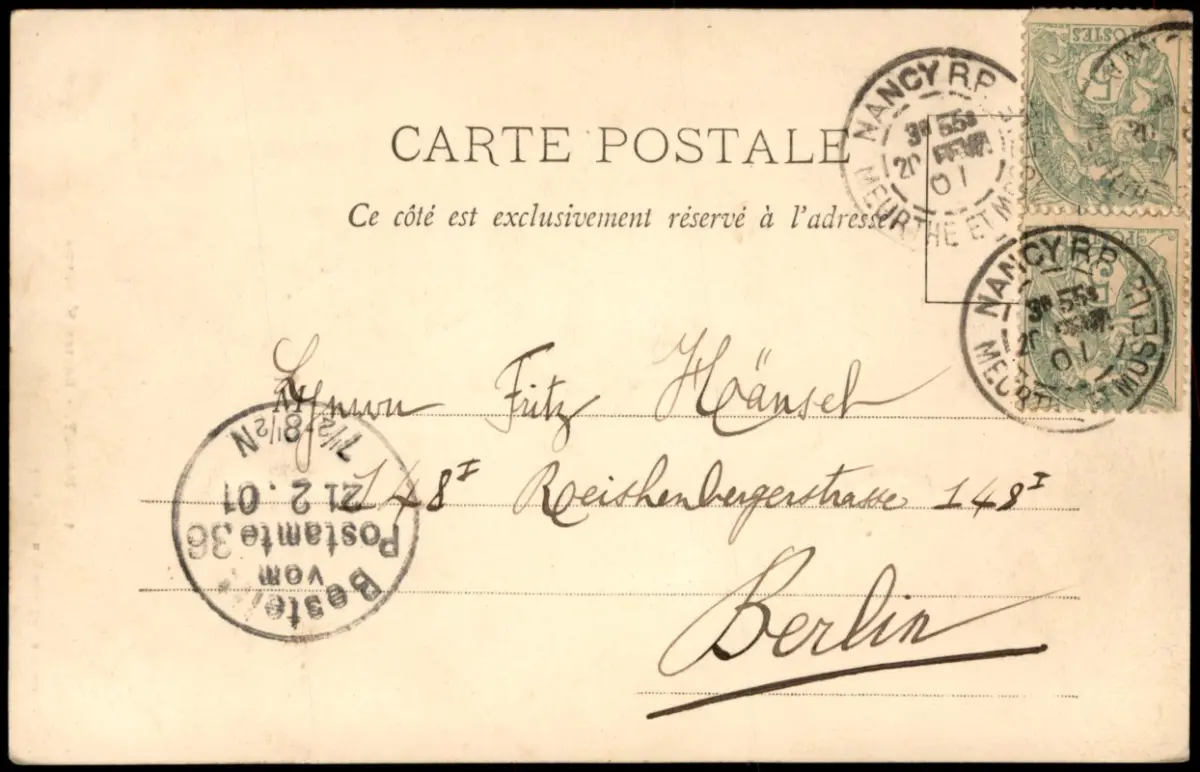 CARTE POSTALE
Ce côté est exclusivement réservé à l'adresse
NANCY R.P.
3E 55S
20 FEVR
01
MEURTHE ET MOSELLE
POSTES
5
NANCY R.P.
3E 55S
20 FEVR
01
MEURTHE ET MOSELLE
Fritz Hänsel
148I Reichenbergerstrasse 148I
Berlin
Bestellt
vom
Postamte 36
21 2.01
7½-8½N